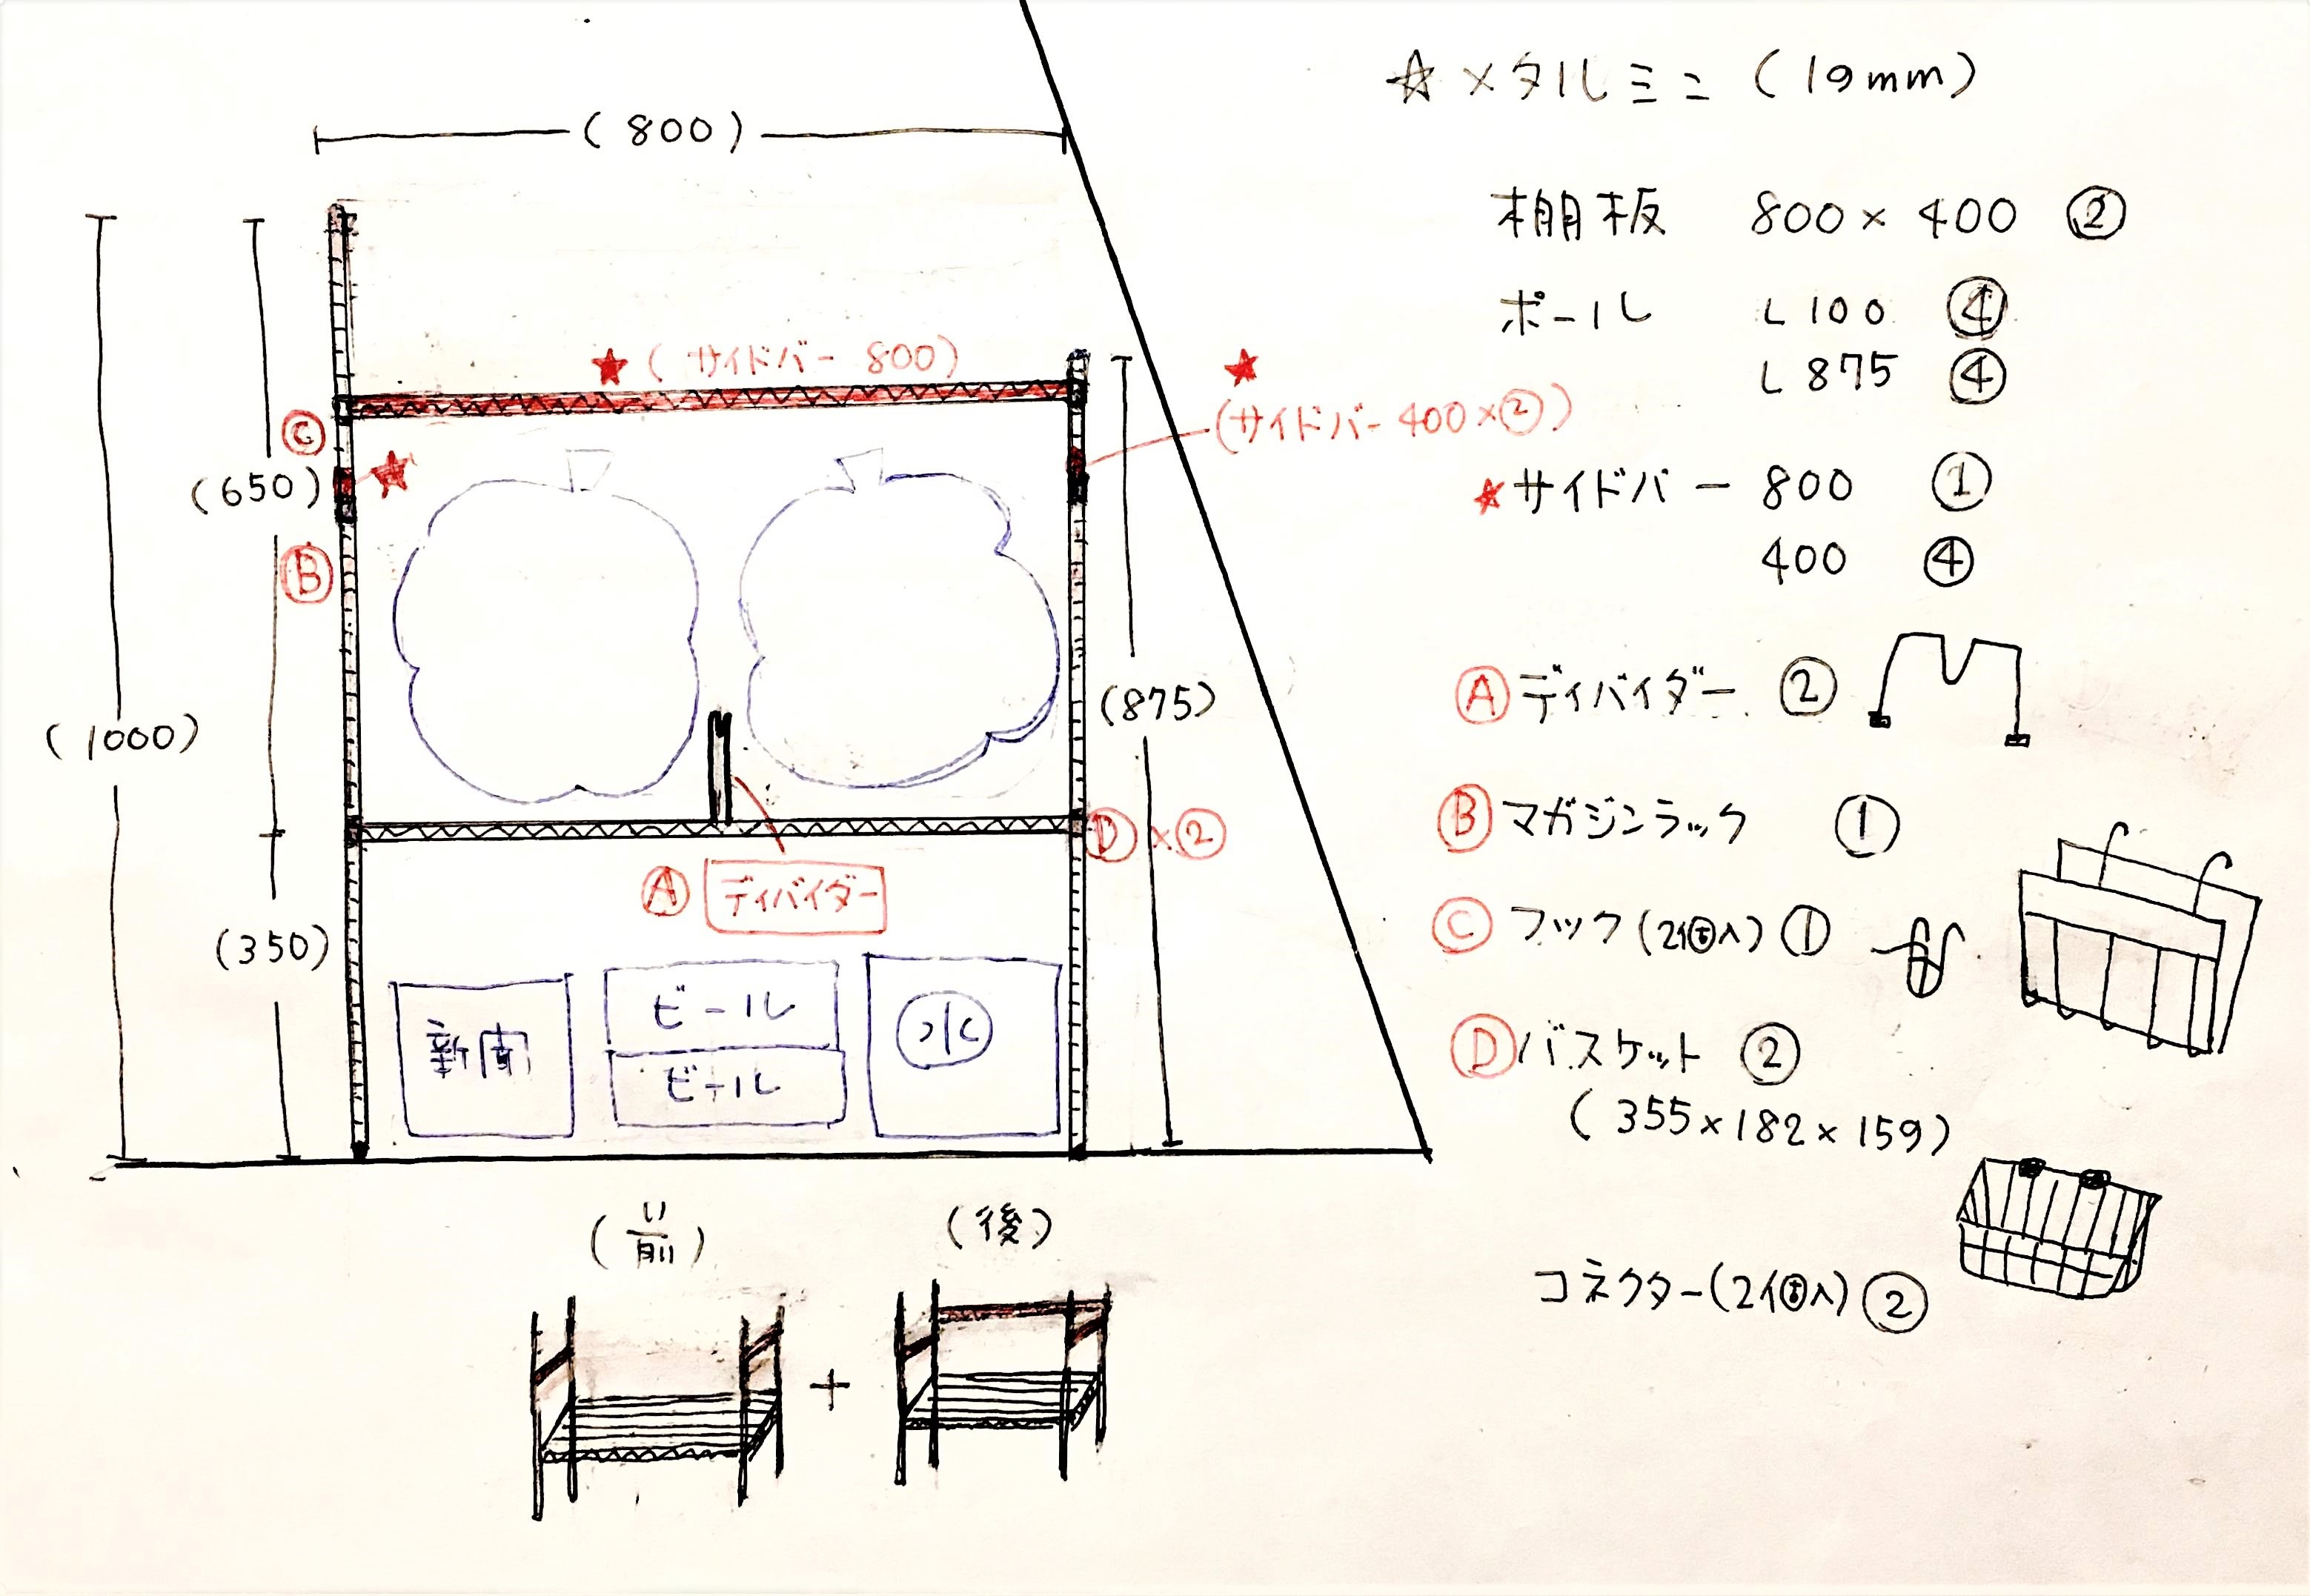 (800)
★(サイドバー 800)
★
(サイドバー 400×②)
Ⓒ
★
(650)
Ⓑ
(1000)
(875)
Ⓓ×②
Ⓐ ディバイダー
(350)
新聞
ビール
ビール
水
(前)
(後)
+
☆メタルミニ (19mm)
棚板 800×400 ②
ポール L100 ④
L875 ④
★サイドバー 800 ①
400 ④
Ⓐディバイダー ②
Ⓑマガジンラック ①
Ⓒフック(2個入) ①
Ⓓバスケット ②
(355×182×159)
コネクター(2個入) ②